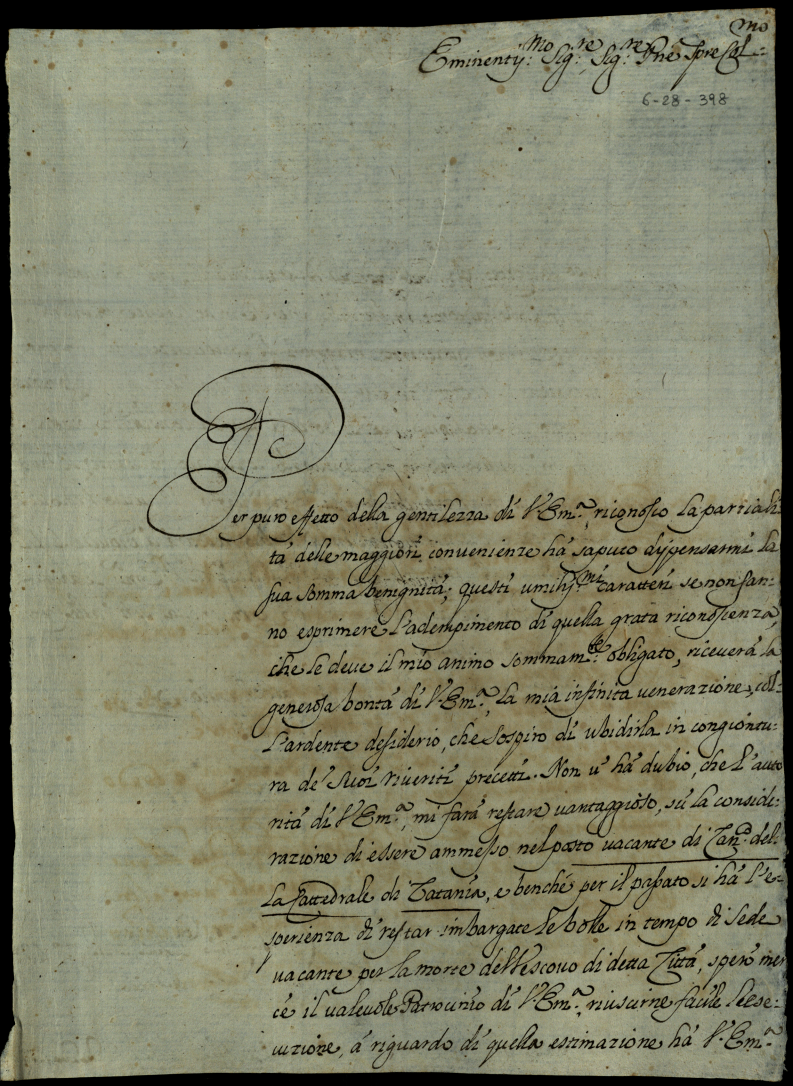 Eminentiss:mo Sig:re Sig:re Pne Pre Col:mo
6-28-398
Per puro effetto della gentilezza di V. Em:a, ricognosco la partiali:
tà delle maggiori convenienze hà saputo dispensarmi la
sua somma benignità; questi umiliss:mi caratteri se non san:
no esprimere l'adempimento di quella grata riconoscenza,
che le deve il mio animo sommam:te obligato, riceverà la
generosa bontà di V. Em:a, la mia infinita venerazione, coll:
l'ardente desiderio, che sospiro di ubidirla in congiontu:
ra de' suoi riveriti precetti. Non v'hà dubio, che l'auto
rità di V. Em:a, mi farà restare vantaggioso, sù la conside:
razione di essere ammesso nel posto vacante di Can:o del:
la Cattedrale di Catania, e benché per il passato si hà l'e:
sperienza di restar imbargate le bolle in tempo di sede
vacante per la morte del Vescovo di detta Città, spero mer
cè il valevole Patrocinio di V. Em:a, riuscirne facile l'ese:
cuzione, à riguardo di quella estimazione hà V. Em:a